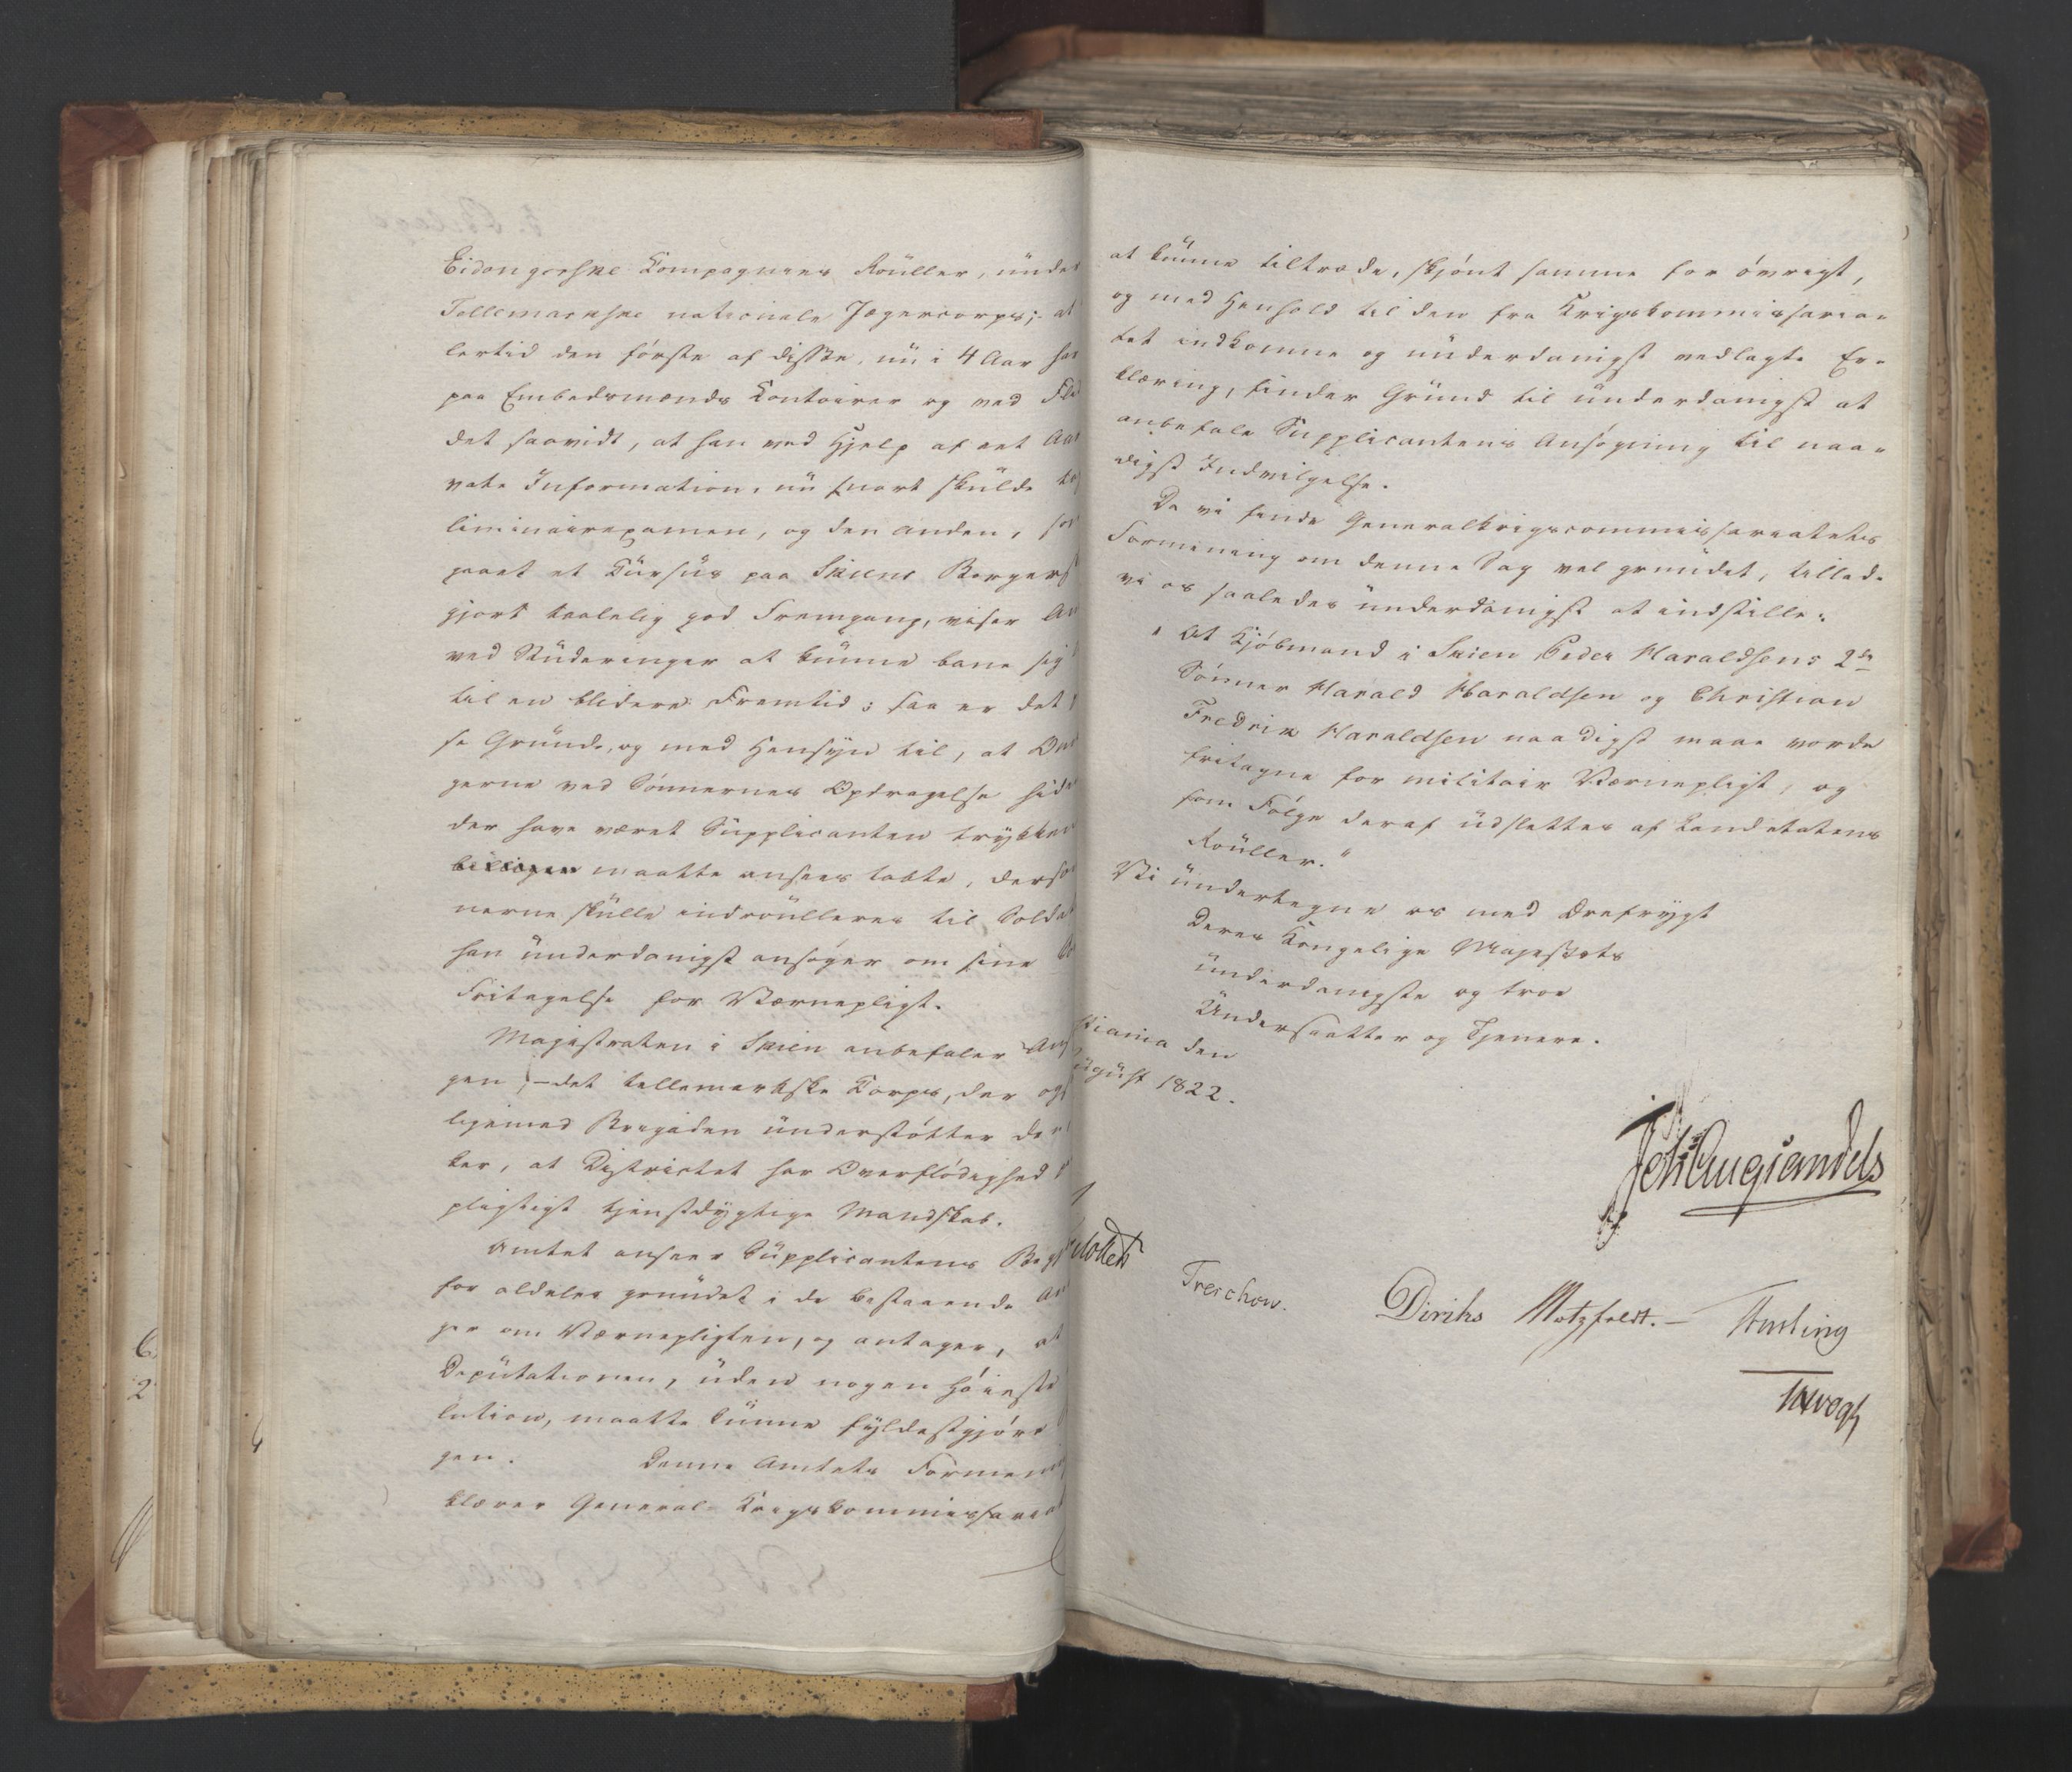 Eidangerske Compagnies Rouller, under
Tellemarkske nationale Jægercorps; at
lertid den første af disse, nu i 4 Aar har
paa Embedsmænds Contoirer og ved Fli
det saavidt, at han ved Hjelp af eet Aar
vate Information, nu snart skulde ta
liminairexamen, og den anden, so
gaaet et Cursus paa Skiens Borgers
gjort taalelig god Fremgang, viser An
ved Studeringer at kunne bane sig
til en blidere Fremtid; saa er det
se Grunde, og med Hensyn til, at Om
gerne ved Sønnernes Opdragelse hid
der have været Supplicanten trykken
maatte ansees tabte, derso
nerne skulle indroulleres til Solda
han underdanigst ansøger om sine
Fritagelse for Værnepligt.
Magistraten i Skien anbefaler Ans
gen, - det tellemarkske Corps, der og
ligemed Brigaden understøtter de
ker, at Districtet har Overflødighed
pligtigt tjenstdygtige Mandskab.
Amtet anseer Supplicantens Beg
for aldeles grundet i de bestaaende An
ger om Værnepligten, og antager, at
Deputationen, uden nogen Høieste
lution, maatte kunne fyldestgjøre
gen. Denne Amtets Formen
klærer General-Krigskommissaria
at kunne tiltræde, skjønt samme for øvrigt,
og med Henhold til den fra Krigskommissaria-
tet indkomne og underdanigst vedlagte Er-
klæring, finder Grund til underdanigst at
anbefale Supplicantens Ansøgning til naa-
digst Indvilgelse.
Da vi finde Generalkrigscommissariatets
Formening om denne Sag vel grundet, tillade
vi os saaledes underdanigst at indstille:
" At Kjøbmand i Skien Peder Haraldsens 2de
Sønner Harald Haraldsen og Christian
Fredrik Haraldsen naadigst maae vorde
fritagne for militair Værnepligt, og
som Følge deraf udslettes af Landetatens
Rouller."
Vi undertegne os med Ærefrygt
Deres Kongelige Majestæts
underdanigste og troe
Undersaatter og Tjenere.
stiania den
ugust 1822.
Joh Aug Sandels
Treschow.
Diriks Motzfeldt. -
Krogh